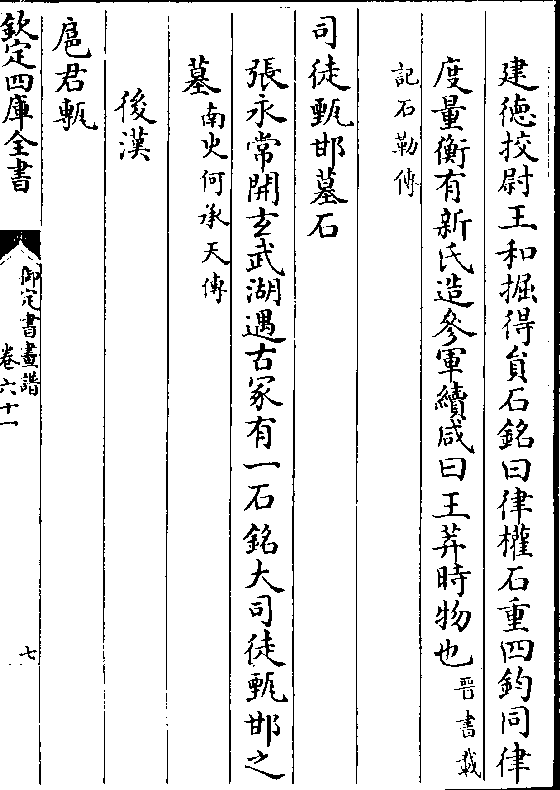 建德挍尉王和掘得員石銘曰律權石重四鈞同律
度量衡有新氏造參軍續咸曰王莽時物也晉書載
記石勒傳
司徒甄邯墓石
張永常開玄武湖遇古冢有一石銘大司徒甄邯之
墓南史何承天傳
後漢
扈君甎
欽定四庫全書
御定書畫譜
卷六十一
七